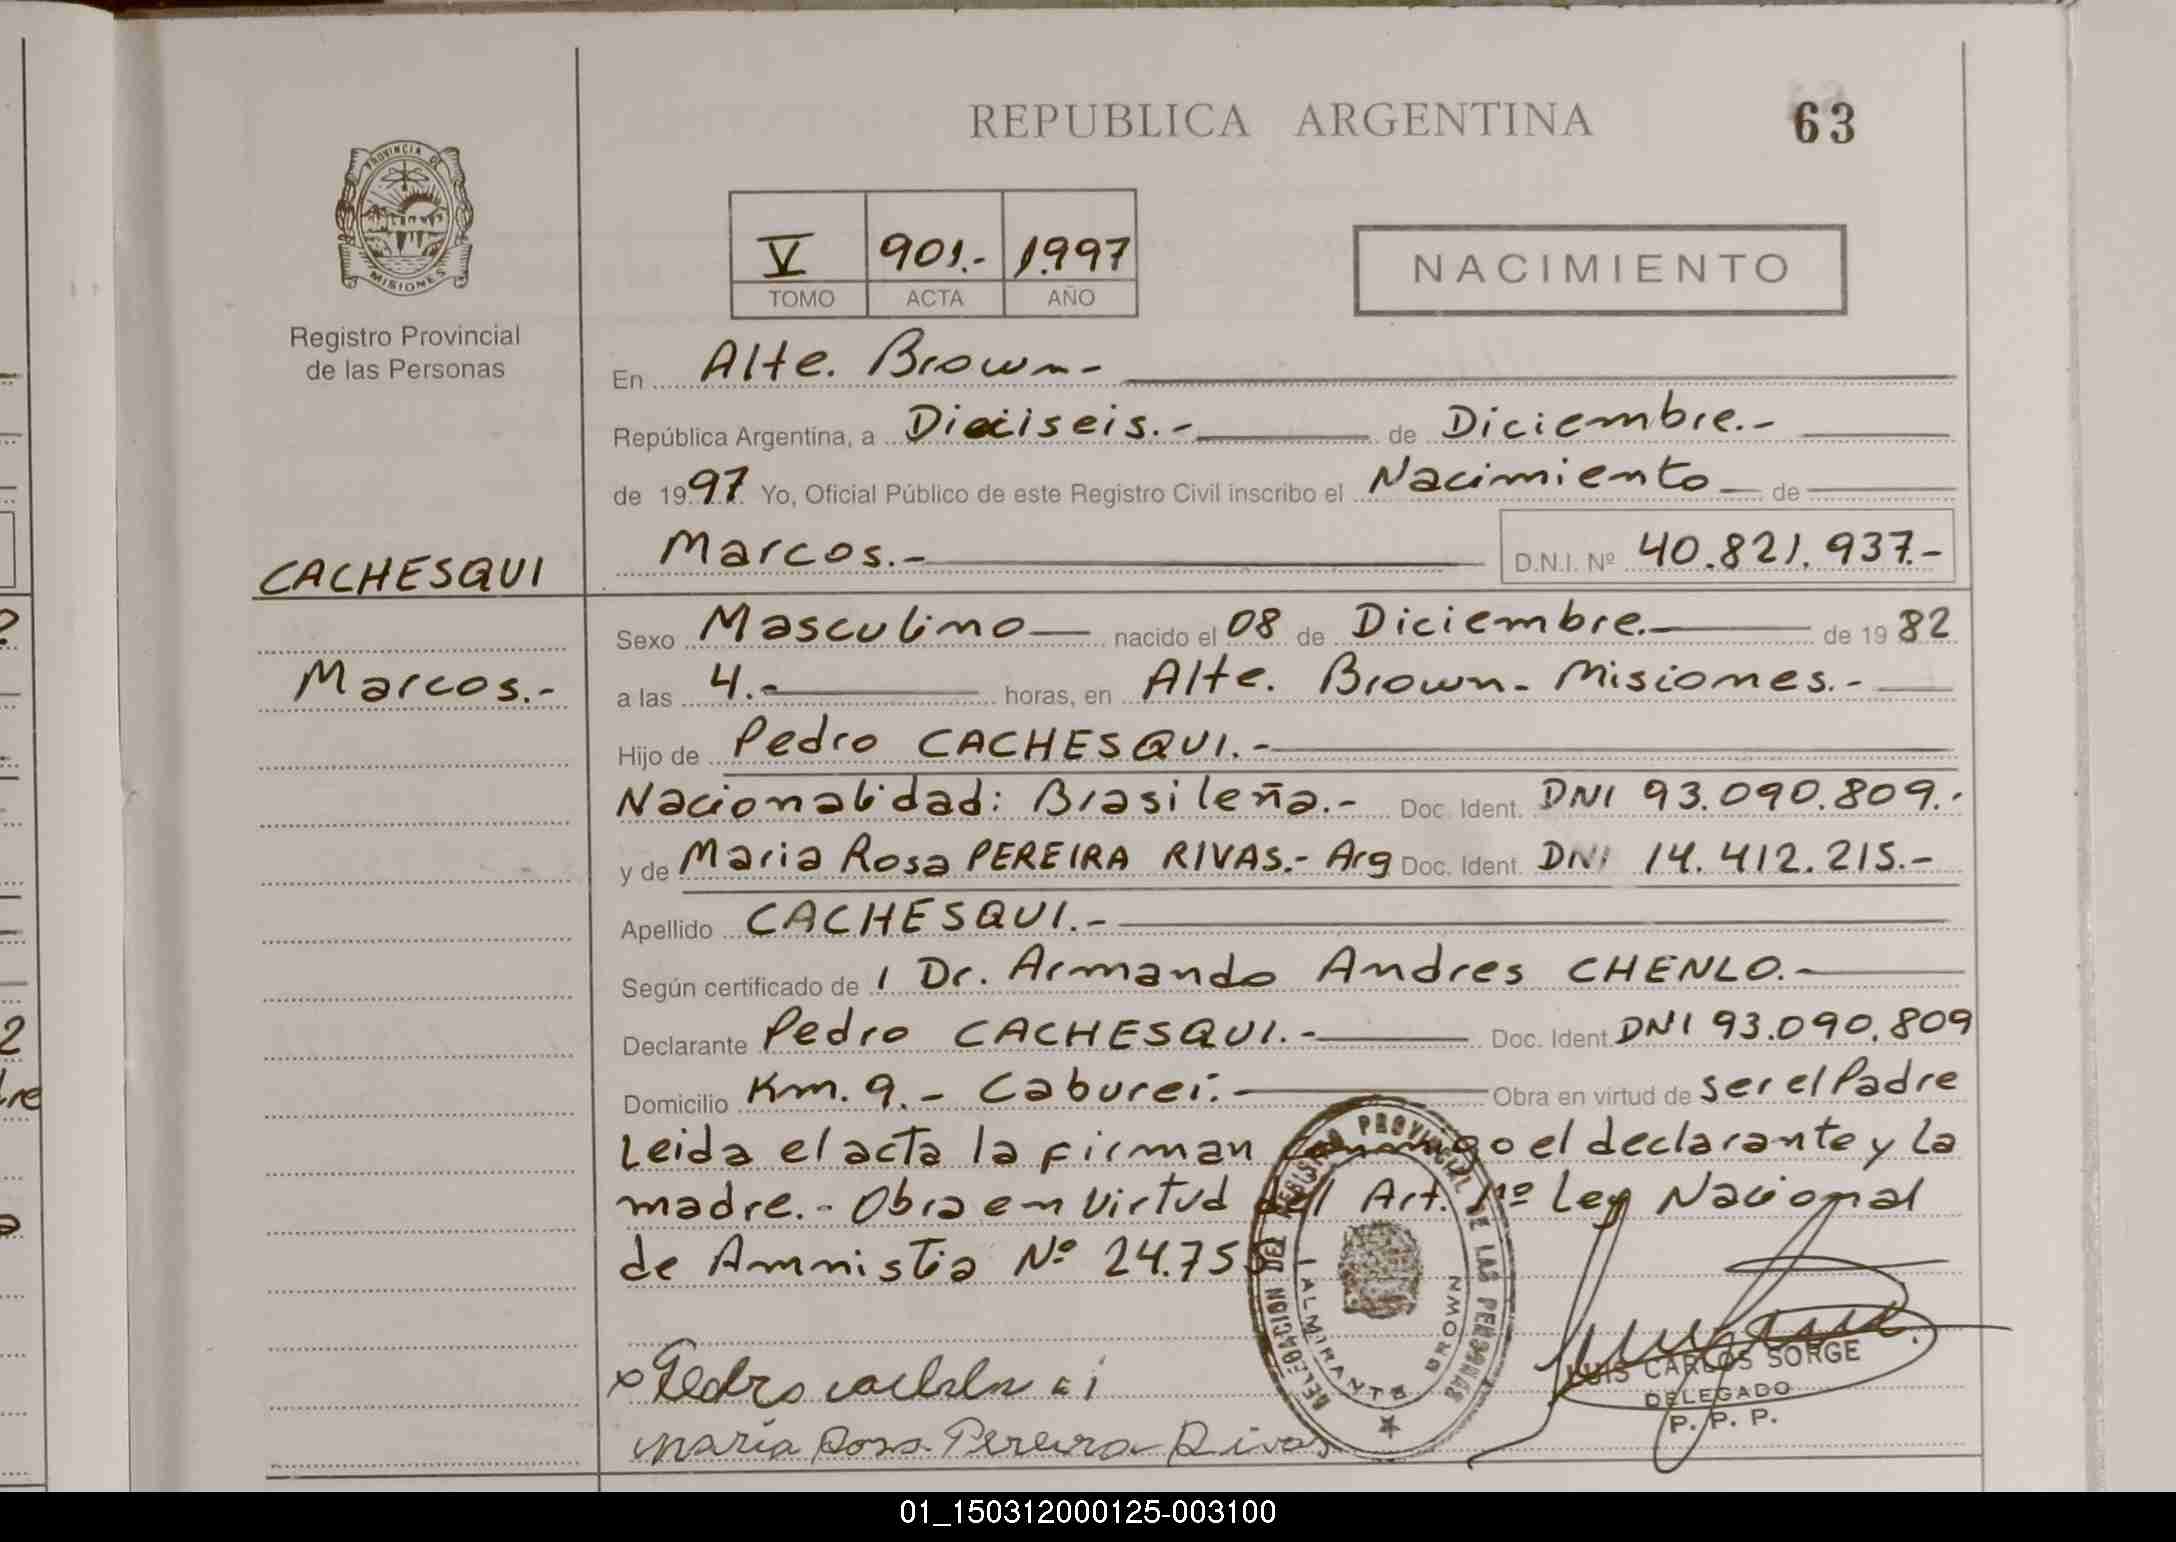 REPUBLICA ARGENTINA
63
PROVINCIA DE
MISIONES
Registro Provincial
de las Personas
V 901.- 1.997
TOMO ACTA AÑO
NACIMIENTO
En Alte. Brown-
República Argentina, a Dieciseis.- de Diciembre.-
de 1997 Yo, Oficial Público de este Registro Civil inscribo el Nacimiento de
Marcos.- D.N.I. Nº 40.821.937.-
CACHESQUI
Marcos.-
Sexo Masculino nacido el 08 de Diciembre. de 19 82
a las 4.- horas, en Alte. Brown- Misiones.-
Hijo de Pedro CACHESQUI.-
Nacionalidad: Brasileña.- Doc. Ident. DNI 93.090.809.-
y de Maria Rosa PEREIRA RIVAS.- Arg Doc. Ident. DNI 14.412.215.-
Apellido CACHESQUI.-
Según certificado de / Dr. Armando Andres CHENLO.-
Declarante Pedro CACHESQUI.- Doc. Ident. DNI 93.090.809
Domicilio Km. 9.- Caburei. Obra en virtud de ser el Padre
Leida el acta la firman conmigo el declarante y la
madre.- Obra en virtud del Art. 1º Ley Nacional
de Amnistia Nº 24.755
DELEGACION DEL REGISTRO PROVINCIAL DE LAS PERSONAS
ALMIRANTE BROWN
x Pedro
Maria Rosa Pereira Rivas
LUIS CARLOS SORGE
DELEGADO
P. P. P.
01_150312000125-003100